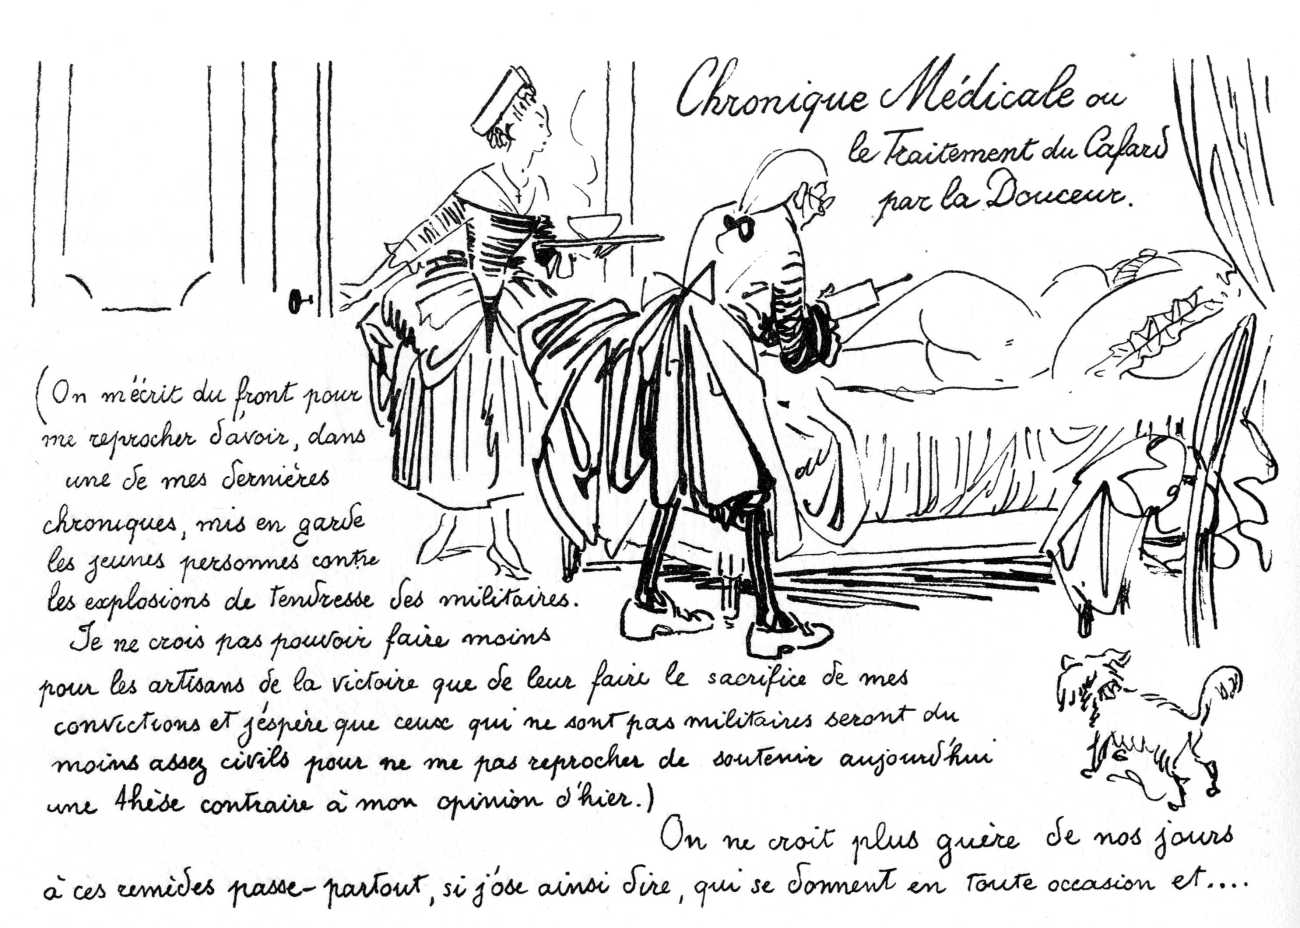 Chronique Médicale ou
le Traitement du Cafard
par la Douceur.
(On m'écrit du front pour
me reprocher d'avoir, dans
une de mes dernières
chroniques, mis en garde
les jeunes personnes contre
les explosions de tendresse des militaires.
Je ne crois pas pouvoir faire moins
pour les artisans de la victoire que de leur faire le sacrifice de mes
convictions et j'éspère que ceux qui ne sont pas militaires seront du
moins assez civils pour ne me pas reprocher de soutenir aujourd'hui
une thèse contraire à mon opinion d'hier.)
On ne croit plus guère de nos jours
à ces remèdes passe-partout, si j'ose ainsi dire, qui se donnent en toute occasion et....